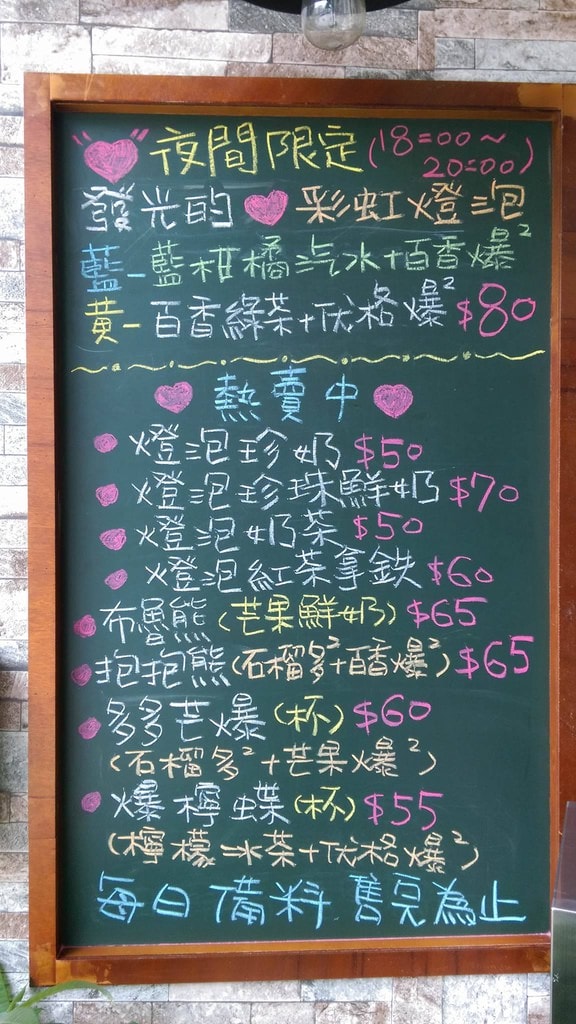 夜間限定(18:00~
20:00)
發光的 彩虹燈泡
藍-藍柑橘汽水+百香爆²
黃-百香綠茶+优格爆² $80
熱賣中
燈泡珍奶 $50
燈泡珍珠鮮奶 $70
燈泡奶茶 $50
燈泡紅茶拿鉄 $60
布魯熊(芒果鮮奶) $65
抱抱熊(石榴多²+百香爆²) $65
多多芒爆(杯) $60
(石榴多²+芒果爆²)
爆檸蝶(杯) $55
(檸檬冰茶+优格爆²)
每日備料 售完為止